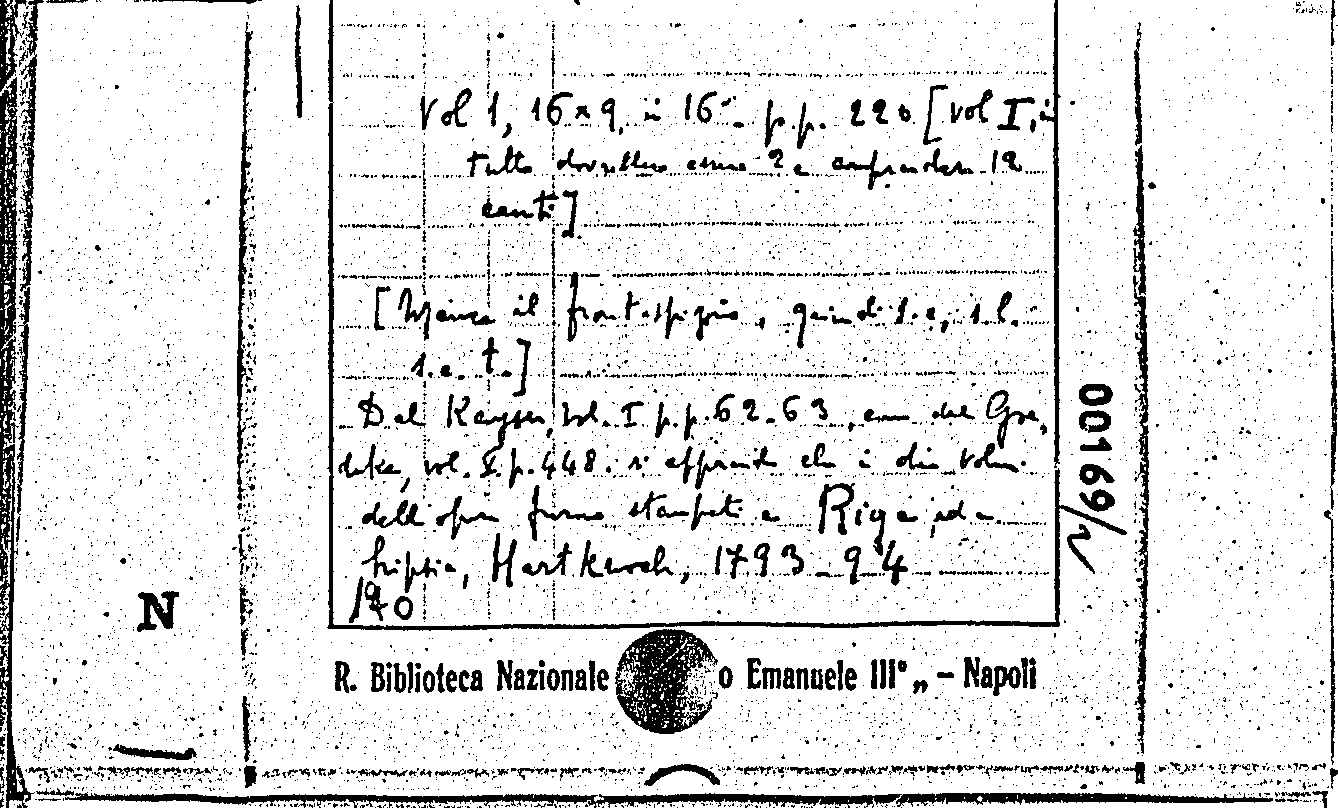 Vol 1, 16 x 9, in 16°. p.p. 220 [vol I, in
tutto dovrebbero essere 2 e comprendere 12
canti]
[Manca il frontespizio, quindi s.a., s.l.
s.e.t.]
Dal Kayser, vol. I p.p. 62-63, come dal Goe,
deke, vol. I. p. 448. si apprende che i due volumi
dell'opera furono stampati a Riga ed a
Lipsia, Hartknoch, 1793-94
190
00169/2
N
R. Biblioteca Nazionale o Emanuele III° „ – Napoli